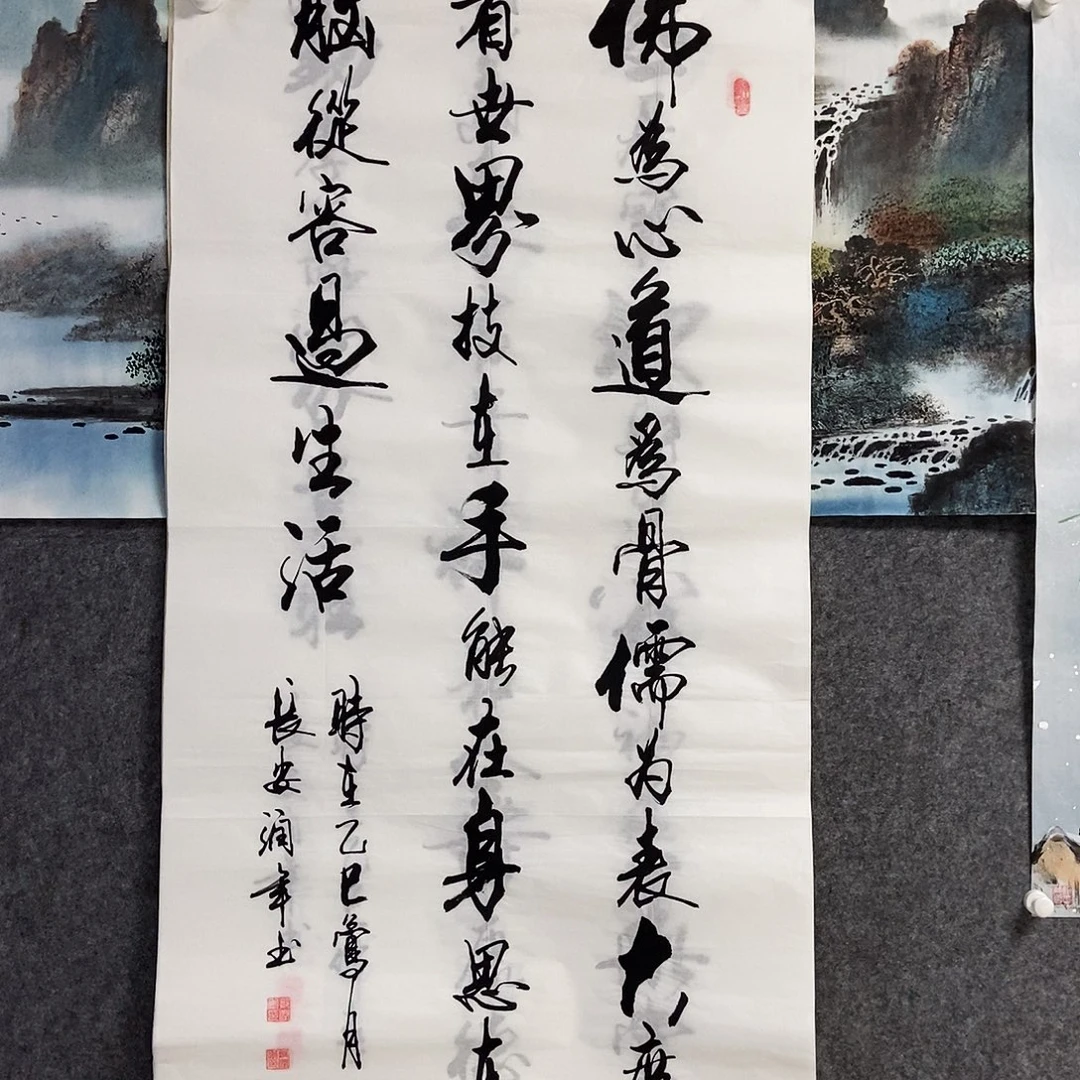 佛為心道為骨儒为表大度
看世界技在手能在身思在
腦從容過生活
時在乙巳鶯月
長安潤年书